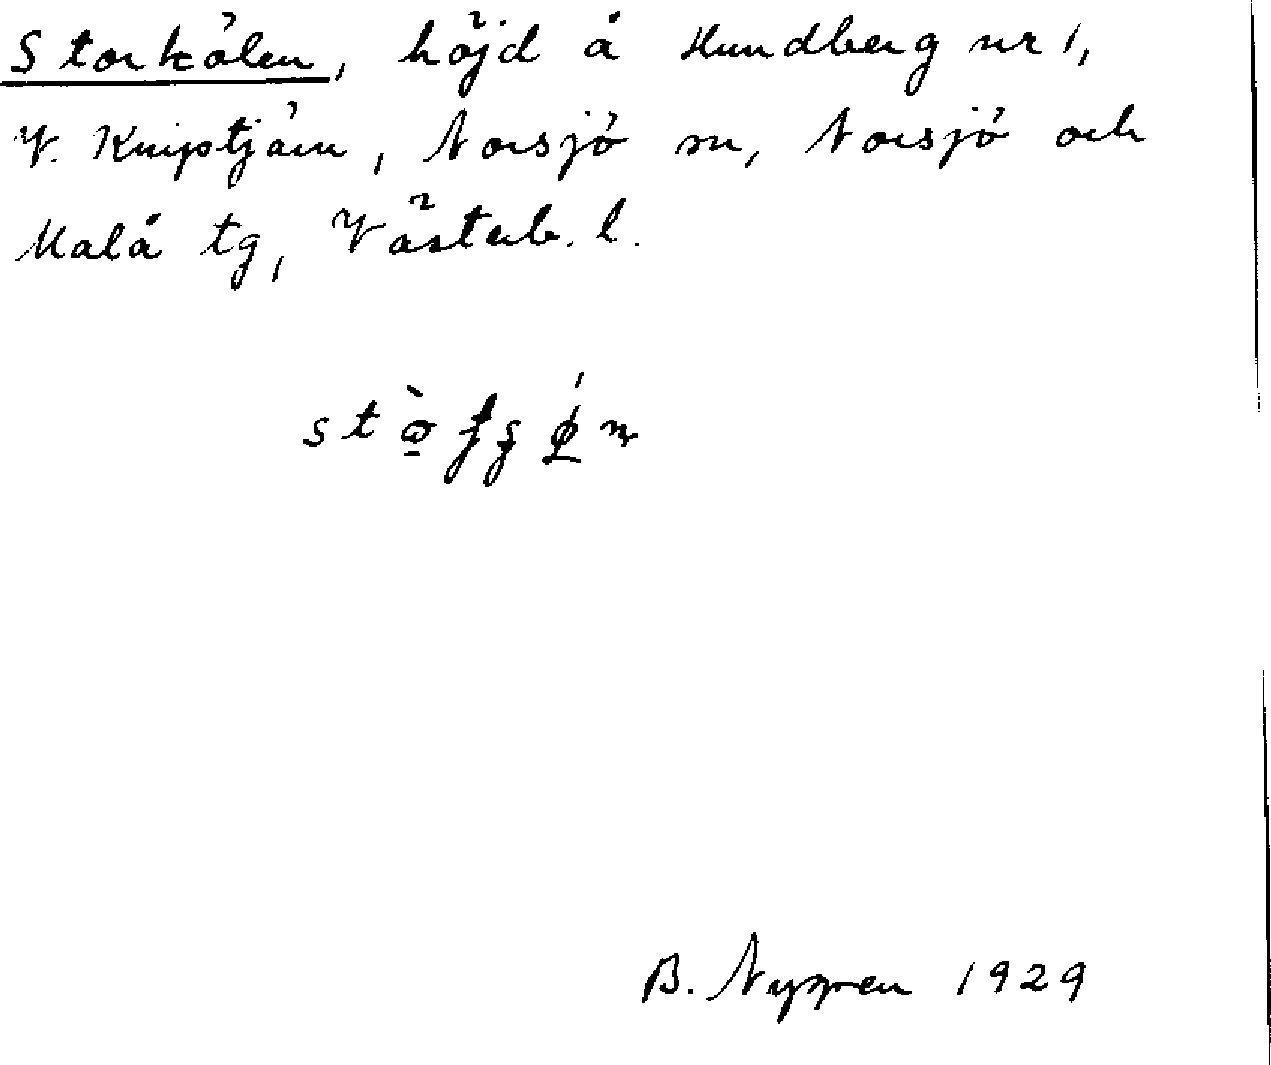 Storkölen, höjd å Hundberg nr 1,
V. Knipstjärn, Norsjö sn, Norsjö och
Malå tg, Västerb. l.
B. Nygren 1929